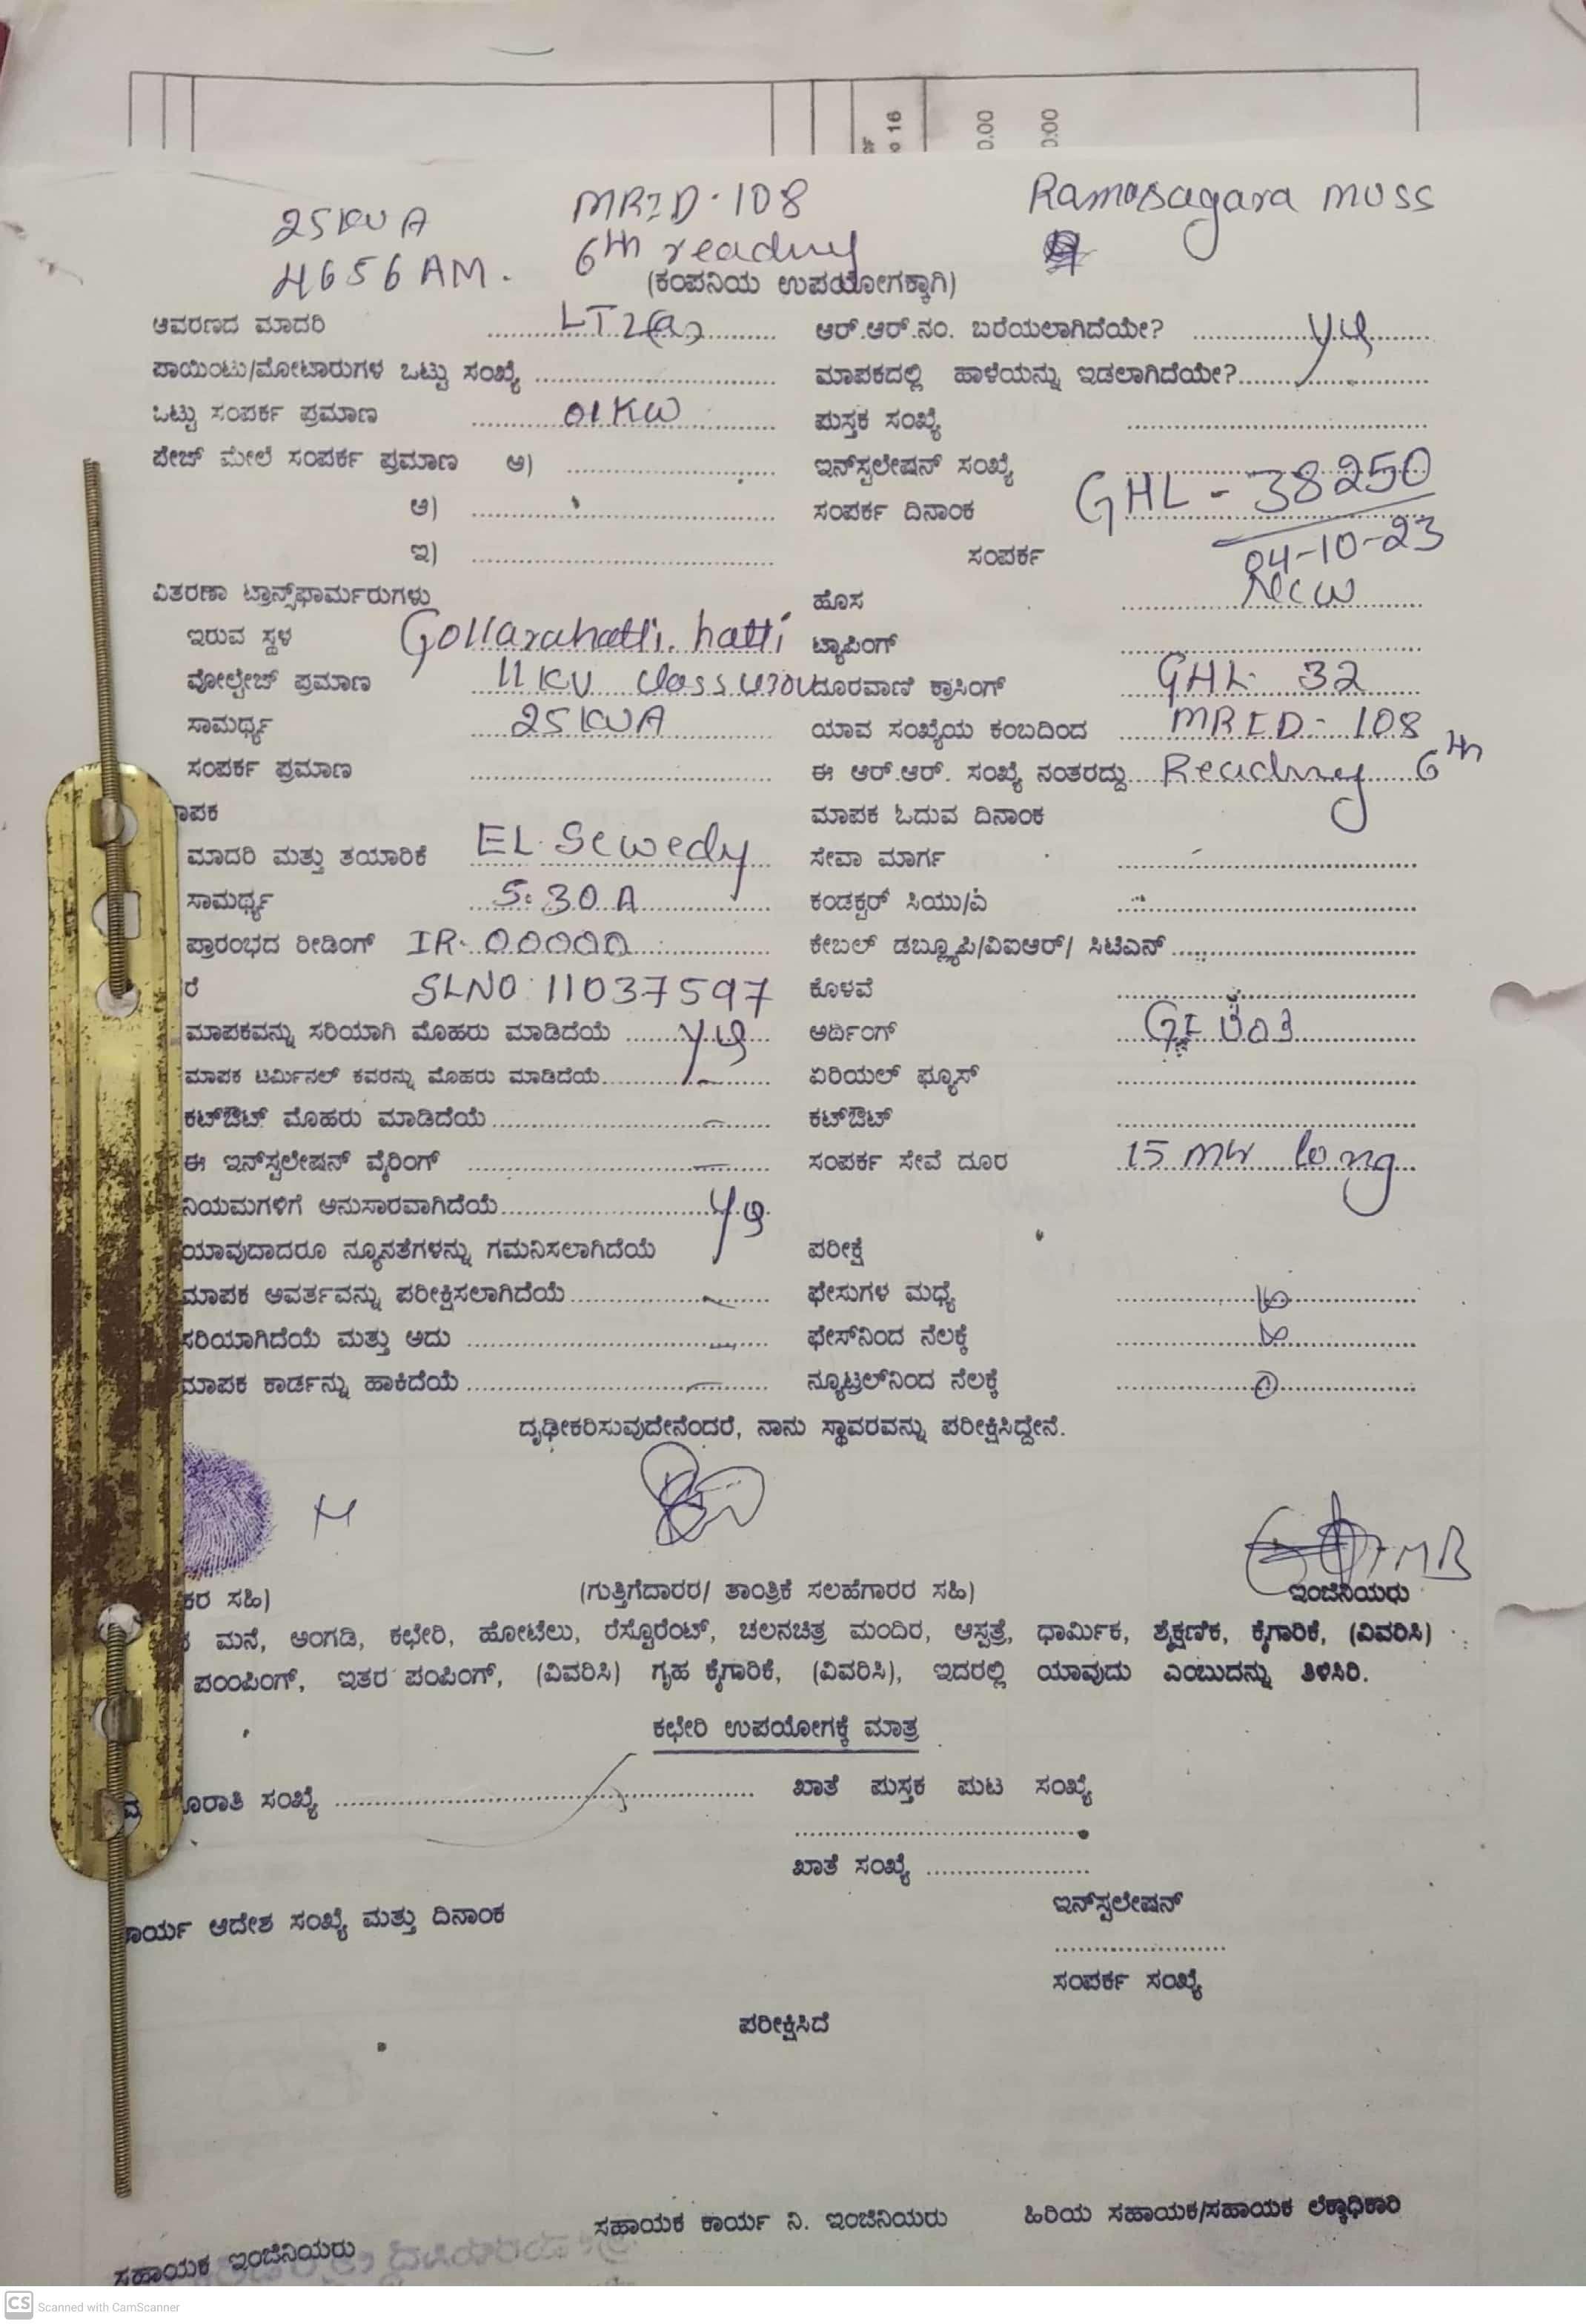 16
0.00
0.00
25KVA MRID-108 Ramasagara MUSS
4656AM. 6th reading
(ಕಂಪನಿಯ ಉಪಯೋಗಕ್ಕಾಗಿ)
ಆವರಣದ ಮಾದರಿ LT2(a) ಆರ್.ಆರ್.ನಂ. ಬರೆಯಲಾಗಿದೆಯೇ? yes
ಪಾಯಿಂಟು/ಮೋಟಾರುಗಳ ಒಟ್ಟು ಸಂಖ್ಯೆ ಮಾಪಕದಲ್ಲಿ ಹಾಳೆಯನ್ನು ಇಡಲಾಗಿದೆಯೇ?
ಒಟ್ಟು ಸಂಪರ್ಕ ಪ್ರಮಾಣ 01KW ಪುಸ್ತಕ ಸಂಖ್ಯೆ
ಪೇಜ್ ಮೇಲೆ ಸಂಪರ್ಕ ಪ್ರಮಾಣ ಅ) ಇನ್‌ಸ್ಟಲೇಷನ್ ಸಂಖ್ಯೆ GHL-38250
ಆ) ಸಂಪರ್ಕ ದಿನಾಂಕ 04-10-23
ಇ) ಸಂಪರ್ಕ
ವಿತರಣಾ ಟ್ರಾನ್ಸ್‌ಫಾರ್ಮರುಗಳು ಹೊಸ New
ಇರುವ ಸ್ಥಳ Gollarahatti. hatti ಟ್ಯಾಪಿಂಗ್
ವೋಲ್ಟೇಜ್ ಪ್ರಮಾಣ 11KV class ದೂರವಾಣಿ ಕ್ರಾಸಿಂಗ್ GHL 32
ಸಾಮರ್ಥ್ಯ 25KVA ಯಾವ ಸಂಖ್ಯೆಯ ಕಂಬದಿಂದ MRID-108
ಸಂಪರ್ಕ ಪ್ರಮಾಣ ಈ ಆರ್.ಆರ್. ಸಂಖ್ಯೆ ನಂತರದ್ದು Reading 6th
ಾಪಕ ಮಾಪಕ ಓದುವ ದಿನಾಂಕ
ಮಾದರಿ ಮತ್ತು ತಯಾರಿಕೆ EL Sewedy ಸೇವಾ ಮಾರ್ಗ
ಸಾಮರ್ಥ್ಯ 5-30A ಕಂಡಕ್ಟರ್ ಸಿಯು/ಎ
ಪ್ರಾರಂಭದ ರೀಡಿಂಗ್ IR-00000 ಕೇಬಲ್ ಡಬ್ಲ್ಯೂಪಿ/ವಿಐಆರ್/ ಸಿಟಿಎಸ್
ರೆ SLNO:11037597 ಕೊಳವೆ
ಮಾಪಕವನ್ನು ಸರಿಯಾಗಿ ಮೊಹರು ಮಾಡಿದೆಯೆ yes ಅರ್ಥಿಂಗ್
ಮಾಪಕ ಟರ್ಮಿನಲ್ ಕವರನ್ನು ಮೊಹರು ಮಾಡಿದೆಯೆ ಏರಿಯಲ್ ಫ್ಯೂಸ್
ಕಟ್‌ಔಟ್ ಮೊಹರು ಮಾಡಿದೆಯೆ ಕಟ್‌ಔಟ್
ಈ ಇನ್‌ಸ್ಟಲೇಷನ್ ವೈರಿಂಗ್ ಸಂಪರ್ಕ ಸೇವೆ ದೂರ 15 mtr long
ನಿಯಮಗಳಿಗೆ ಅನುಸಾರವಾಗಿದೆಯೆ yes
ಯಾವುದಾದರೂ ನ್ಯೂನತೆಗಳನ್ನು ಗಮನಿಸಲಾಗಿದೆಯೆ ಪರೀಕ್ಷೆ
ಮಾಪಕ ಅವರ್ತವನ್ನು ಪರೀಕ್ಷಿಸಲಾಗಿದೆಯೆ ಫೇಸುಗಳ ಮಧ್ಯೆ
ಸರಿಯಾಗಿದೆಯೆ ಮತ್ತು ಅದು ಫೇಸ್‌ನಿಂದ ನೆಲಕ್ಕೆ
ಮಾಪಕ ಕಾರ್ಡನ್ನು ಹಾಕಿದೆಯೆ ನ್ಯೂಟ್ರಲ್‌ನಿಂದ ನೆಲಕ್ಕೆ 0
ದೃಢೀಕರಿಸುವುದೇನೆಂದರೆ, ನಾನು ಸ್ಥಾವರವನ್ನು ಪರೀಕ್ಷಿಸಿದ್ದೇನೆ.
ಕರ ಸಹಿ) (ಗುತ್ತಿಗೆದಾರರ/ ತಾಂತ್ರಿಕೆ ಸಲಹೆಗಾರರ ಸಹಿ) ಇಂಜಿನಿಯರು
ಮನೆ, ಅಂಗಡಿ, ಕಛೇರಿ, ಹೋಟೆಲು, ರೆಸ್ಟೊರೆಂಟ್, ಚಲನಚಿತ್ರ ಮಂದಿರ, ಆಸ್ಪತ್ರೆ, ಧಾರ್ಮಿಕ, ಶೈಕ್ಷಣಿಕ, ಕೈಗಾರಿಕೆ, (ವಿವರಿಸಿ)
ಪಂಂಪಿಂಗ್, ಇತರ ಪಂಪಿಂಗ್, (ವಿವರಿಸಿ) ಗೃಹ ಕೈಗಾರಿಕೆ, (ವಿವರಿಸಿ), ಇದರಲ್ಲಿ ಯಾವುದು ಎಂಬುದನ್ನು ತಿಳಿಸಿರಿ.
ಕಛೇರಿ ಉಪಯೋಗಕ್ಕೆ ಮಾತ್ರ
ೂರಾತಿ ಸಂಖ್ಯೆ ಖಾತೆ ಪುಸ್ತಕ ಪುಟ ಸಂಖ್ಯೆ
ಖಾತೆ ಸಂಖ್ಯೆ
ಾರ್ಯ ಆದೇಶ ಸಂಖ್ಯೆ ಮತ್ತು ದಿನಾಂಕ ಇನ್‌ಸ್ಟಲೇಷನ್
ಸಂಪರ್ಕ ಸಂಖ್ಯೆ
ಪರೀಕ್ಷಿಸಿದೆ
ಸಹಾಯಕ ಇಂಜಿನಿಯರು ಸಹಾಯಕ ಕಾರ್ಯ ನಿ. ಇಂಜಿನಿಯರು ಹಿರಿಯ ಸಹಾಯಕ/ಸಹಾಯಕ ಲೆಕ್ಕಾಧಿಕಾರಿ
CS Scanned with CamScanner